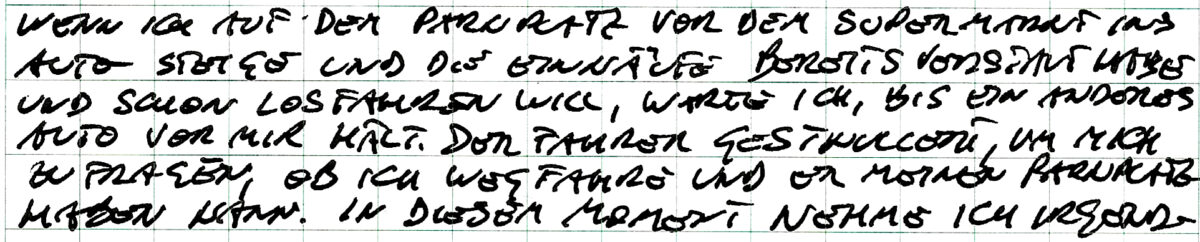 WENN ICH AUF DEM PARKPLATZ VOR DEM SUPERMARKT INS
AUTO STEIGE UND DIE EINKÄUFE BEREITS VERSTAUT HABE
UND SCHON LOSFAHREN WILL, WARTE ICH, BIS EIN ANDERES
AUTO VOR MIR HÄLT. DER FAHRER GESTIKULIERT, UM MICH
ZU FRAGEN, OB ICH WEGFAHRE UND ER MEINEN PARKPLATZ
HABEN KANN. IN DIESEM MOMENT NEHME ICH IRGEND-